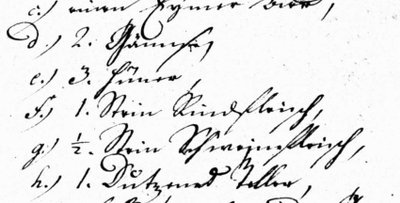 c.) einen Eymer Bier,
d.) 2. Gänse,
e.) 3. Hüner,
f.) 1. Stein Rindfleisch,
g.) ½. Stein Schweinefleisch,
h.) 1. Dutzend Teller,